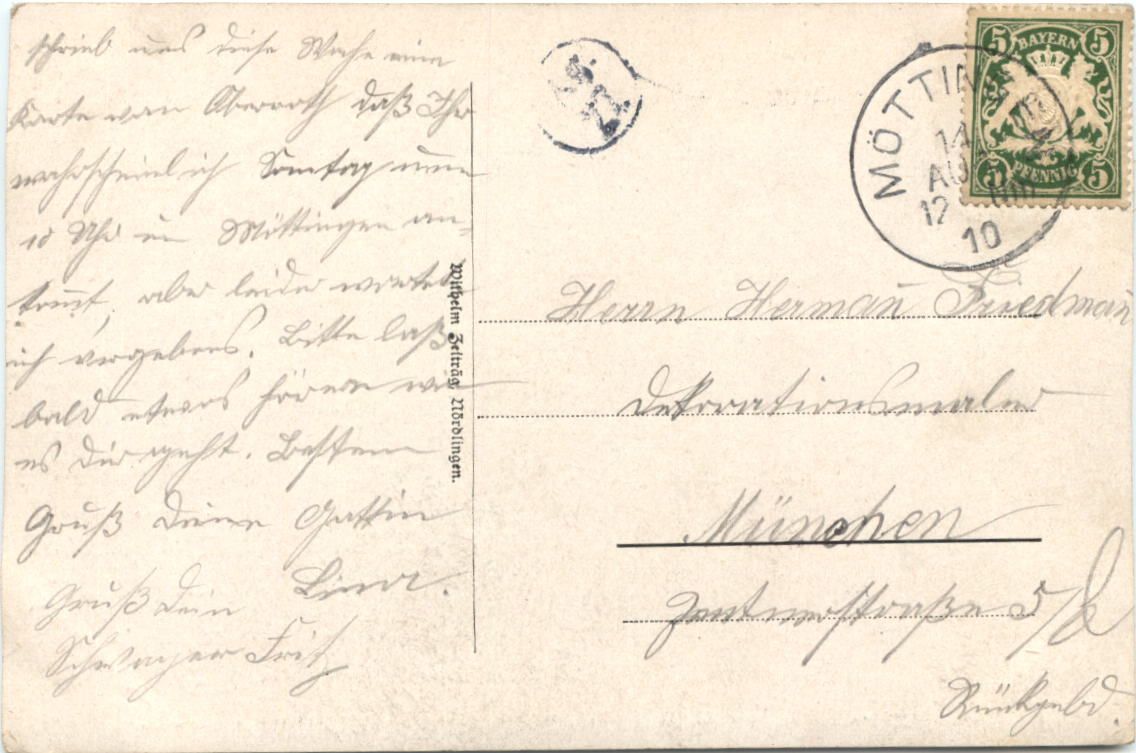 schrieb uns diese Woche eine
Karte von Oberroth daß Ihr
wahrscheinlich Sonntag
10 Uhr in Möttingen an-
kommt, aber leider wartete
ich vergebens. Bitte laß
bald etwas hören wie
es Dir geht. Besten
Gruß Deine Gattin
Lina.
Gruß Dein
Schwager Fritz
Wilhelm Zelträg, Nördlingen.
MÖTTIN
14
AU
12
10
BAYERN
5 5
5 PFENNIG 5
Herrn Herman̄ Friedman̄
Dekorationsmaler
München
Zentnerstraße 5/
Rückgeb.